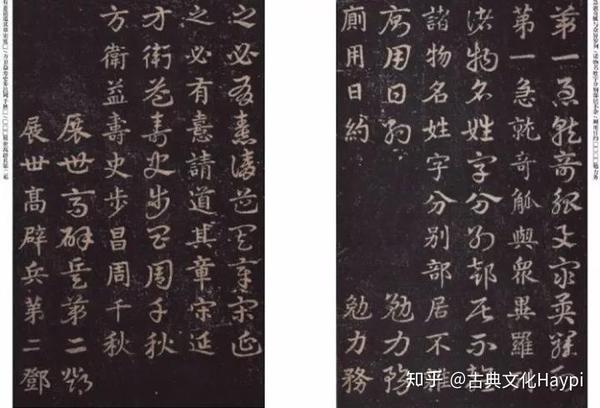 第一急就奇觚與眾異羅列
第一急就奇觚與眾異羅列
諸物名姓字分別部居不雜
諸物名姓字分別部居不雜
廁用日約 勉力務
廁用日約 勉力務
之必有憙請道其章宋延
之必有憙請道其章宋延
方衛益壽史步昌周千秋
方衛益壽史步昌周千秋
展世高辟兵第二鄧
展世高辟兵第二鄧
知乎 @古典文化Haypi